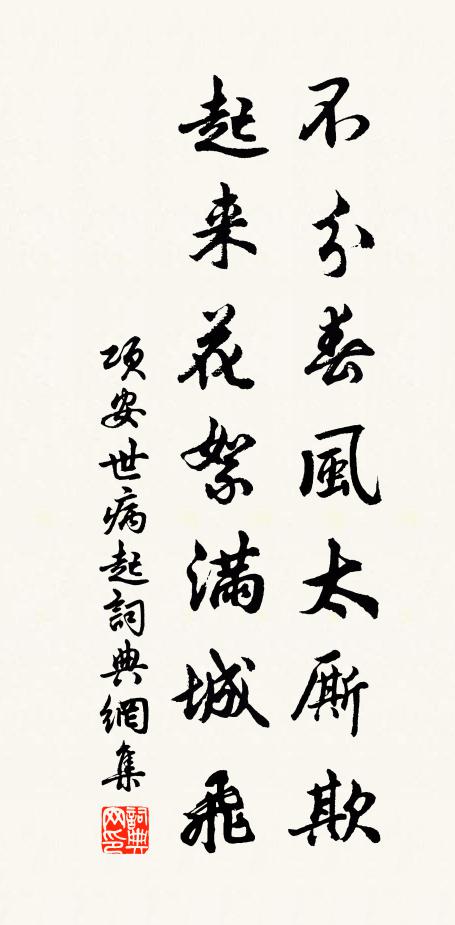 不分春風太厮欺
起来花絮滿城飛
項安世病起詞典網集
詞典網印